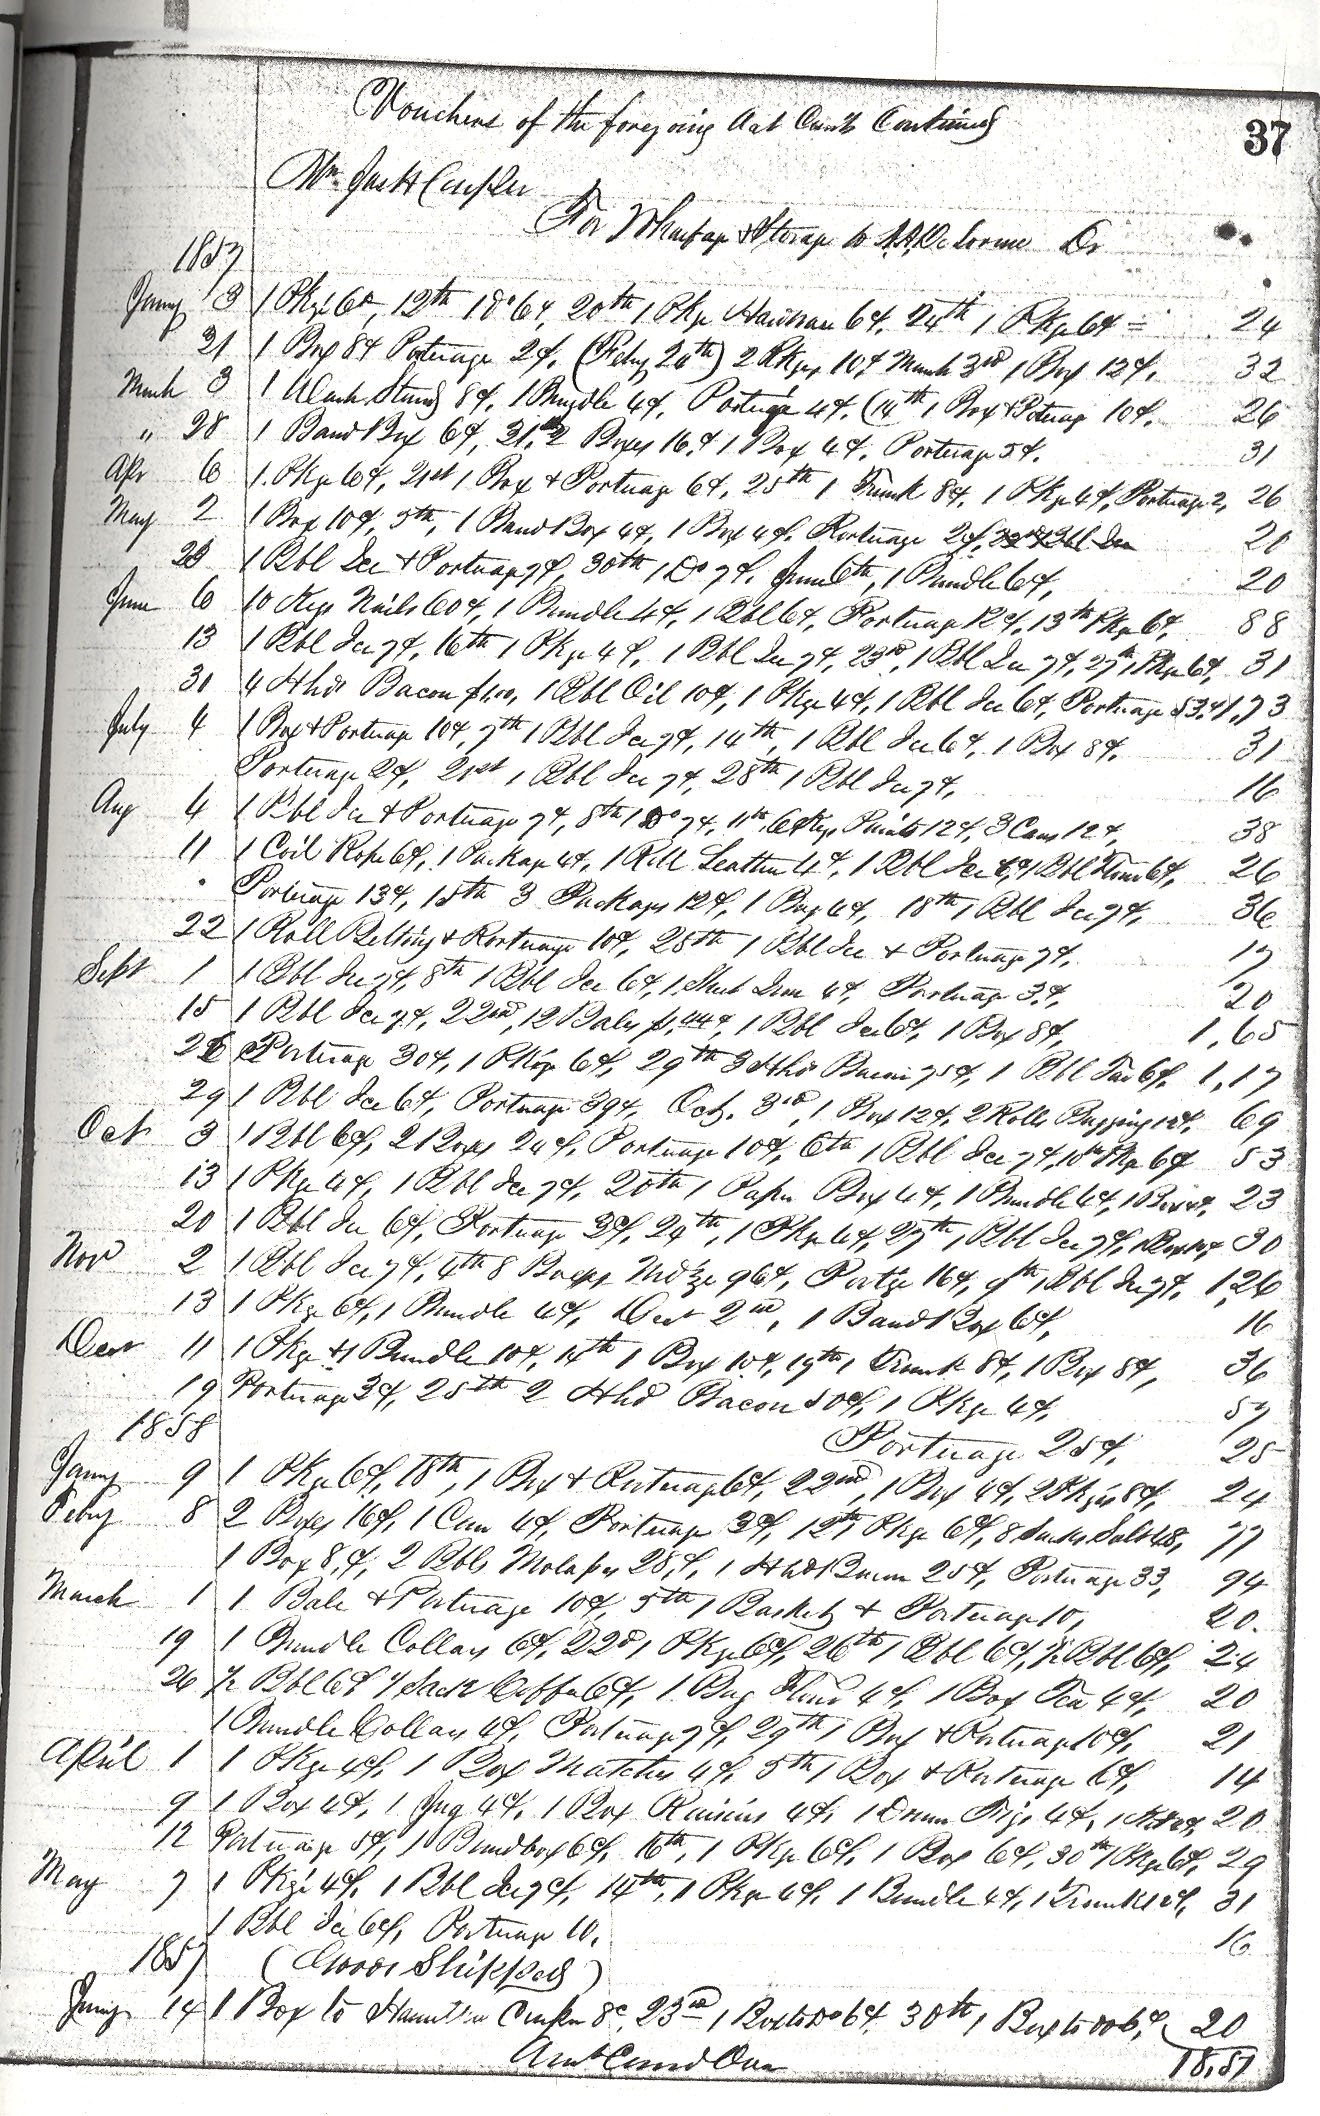 Vouchers of the foregoing Act Curnt Continued
37
Wm Jack
For Wharfage & Storage to Delorme Dr
1857
Jany 3 1 Pkge 6¢, 12th 1 Do 6¢, 20th 1 Pkge 6¢, 24th 1 Pkge 6¢ = 24
21 1 Box 8¢ Portuage 2¢, (Feby 20th) 2 Pkges 10¢ March 3rd 1 Box 12¢, 32
March 3 1 Stand 8¢, 1 Bundle 4¢, Portuage 4¢, (14th 1 Box & Portuage 10¢, 26
" 28 1 Band Box 6¢, 31st 2 Boxes 16¢, 1 Box 4¢, Portuage 5¢, 31
Apr 6 1 Pkge 6¢, 21st 1 Box & Portuage 6¢, 25th 1 Trunk 8¢, 1 Pkge 4¢, Portuage 2, 26
May 2 1 Box 10¢, 5th, 1 Band Box 4¢, 1 Box 4¢, Portuage 2¢, 20
23 1 Bbl Ice & Portuage 7¢, 30th 1 Do 7¢, June 6th, 1 Bundle 6¢, 20
June 6 10 Kegs Nails 60¢, 1 Bundle 4¢, 1 Bbl 6¢, Portuage 12¢, 13th Pkge 6¢, 88
13 1 Bbl Ice 7¢, 16th 1 Pkge 4¢, 1 Bbl Ice 7¢, 23rd, 1 Bbl Ice 7¢, 27th 1 Pkge 6¢, 31
30 4 Hhds Bacon $1.00, 1 Bbl Oil 10¢, 1 Pkge 4¢, 1 Bbl Ice 6¢, Portuage 53¢, 1,73
July 4 1 Box & Portuage 10¢, 7th 1 Bbl Ice 7¢, 14th, 1 Bbl Ice 6¢, 1 Box 8¢, 31
Portuage 2¢, 21st 1 Bbl Ice 7¢, 28th 1 Bbl Ice 7¢, 16
Aug 4 1 Bbl Ice & Portuage 7¢, 8th 1 Do 7¢, 11th, 6 Kegs Paints 12¢, 3 Cans 12¢, 38
11 1 Coil Rope 6¢, 1 Package 4¢, 1 Roll Leather 4¢, 1 Bbl Ice 6¢, 1 Bbl Flour 6¢, 26
Portuage 13¢, 15th 3 Packages 12¢, 1 Bag 4¢, 18th 1 Bbl Ice 7¢, 36
22 1 Roll Belting & Portuage 10¢, 25th 1 Bbl Ice & Portuage 7¢, 17
Sept 1 1 Bbl Ice 7¢, 8th 1 Bbl Ice 6¢, 1 Sheet Iron 4¢, Portuage 3¢, 20
15 1 Bbl Ice 7¢, 22nd, 12 Bales $1.44¢, 1 Bbl Ice 6¢, 1 Box 8¢, 1,65
26 Portuage 30¢, 1 Pkge 6¢, 29th 3 Hhds Bacon 75¢, 1 Bbl Tar 6¢, 1,17
29 1 Bbl Ice 6¢, Portuage 39¢, Oct. 3rd, 1 Box 12¢, 2 Rolls Bagging 12¢, 69
Oct 3 1 Bbl 6¢, 2 Boxes 24¢, Portuage 10¢, 6th 1 Bbl Ice 7¢, 10th Pkge 6¢ 53
13 1 Pkge 4¢, 1 Bbl Ice 7¢, 20th 1 Paper Box 4¢, 1 Bundle 4¢, 1 Box 4¢, 23
20 1 Bbl Ice 6¢, Portuage 3¢, 24th, 1 Pkge 4¢, 27th, 1 Bbl Ice 7¢, 1 Box 10¢ 30
Nov 2 1 Bbl Ice 7¢, 4th 8 Boxes 96¢, Portge 16¢, 9th, 1 Bbl Ice 7¢, 1,26
13 1 Pkge 6¢, 1 Bundle 4¢, Dect 2nd, 1 Band Box 6¢, 16
Dect 11 1 Pkge & 1 Bundle 10¢, 14th 1 Box 10¢, 19th 1 Trunk 8¢, 1 Box 8¢, 36
19 Portuage 3¢, 25th 2 Hhds Bacon 50¢, 1 Pkge 4¢, 57
1858 Portuage 25¢, 25
Jany 9 1 Pkge 6¢, 18th, 1 Box & Portuage 6¢, 22nd, 1 Box 4¢, 2 Pkges 8¢, 24
Feby 8 2 Boxes 16¢, 1 Can 4¢, Portuage 3¢, 12th, Pkge 6¢, 8 Sacks Salt 48, 77
1 Box 8¢, 2 Bbls Molasses 28¢, 1 Hhd Bacon 25¢, Portuage 33, 94
March 1 1 Bale & Portuage 10¢, 5th 1 Basket & Portuage 10, 20.
19 1 Bundle Collars 6¢, 22d 1 Pkge 6¢, 26th 1 Bbl 6¢, ½ Bbl 6¢, 24
26 ½ Bbl 6¢ 1 Sack Coffee 6¢, 1 Bag Flour 4¢, 1 Box Tea 4¢, 20
1 Bundle Collars 4¢, Portuage 7¢, 29th 1 Box & Portuage 10¢, 21
April 1 1 Pkge 4¢, 1 Box Matches 4¢, 5th 1 Box & Portuage 6¢, 14
9 1 Box 4¢, 1 Jug 4¢, 1 Box Raisins 4¢, 1 Drum Figs 4¢, 20
12 Portuage 5¢, 1 Bandbox 6¢, 16th, 1 Pkge 6¢, 1 Box 6¢, 30th 1 Pkge 6¢, 29
May 7 1 Pkge 4¢, 1 Bbl Ice 7¢, 14th, 1 Pkge 4¢, 1 Bundle 4¢, 1 Trunk 12¢, 31
1 Bbl Ice 6¢, Portuage 10, 16
1857 (Goods Shipped)
Jany 14 1 Box to 8c, 23rd 1 Box to Do 6¢, 30th 1 Box to do 6¢, 20
Amt Carrd Over 18,51